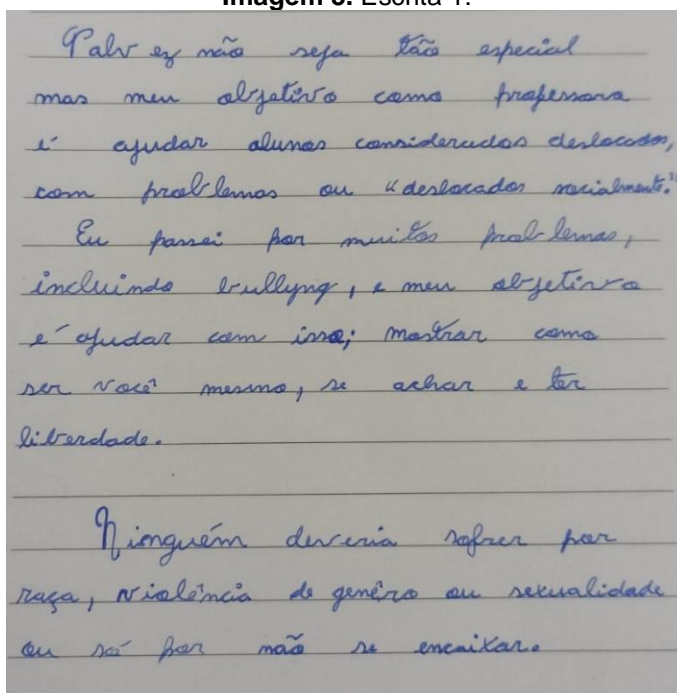 Imagem 3. Escrita 1.
Talvez não seja tão especial
mas meu objetivo como professora
é ajudar alunos considerados deslocados,
com problemas ou "deslocados socialmente."
Eu passei por muitos problemas,
incluindo bullyng, e meu objetivo
é ajudar com isso; mostrar como
ser você mesmo, se achar e ter
liberdade.
Ninguém deveria sofrer por
raça, violência de genêro ou sexualidade
ou só por não se encaixar.